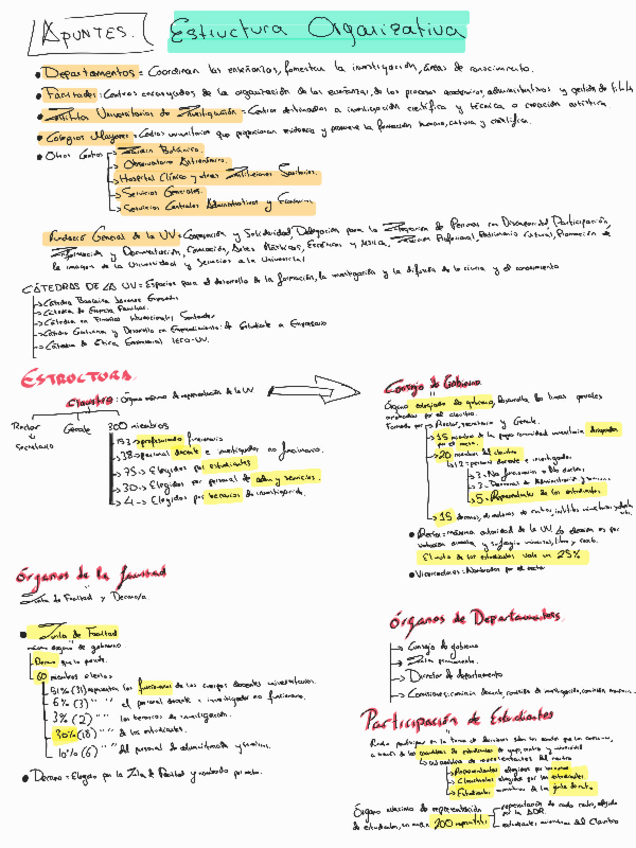 APUNTES. Estructura Organizativa
• Departamentos = Coordinan las enseñanzas, fomentan la investigación, áreas de conocimiento.
• Facultades = Centros encargados de la organización de las enseñanzas, de los procesos académicos, administrativos y gestión de
• Institutos Universitarios de Investigación = Centros destinados a investigación científica y técnica o creación artística
• Colegios Mayores = Centros universitarios que proporcionan residencia y promueve la formación humana, cultura y científica.
• Otros Centros
→ Jardín Botánico.
→ Observatorio Astronómico.
→ Hospital Clínico y otras Instituciones Sanitarias.
→ Servicios Generales.
→ Servicios Centrales Administrativos y Económicos
Fundació General de la UV = Cooperación y Solidaridad, Delegación para la Integración de Personas con Discapacidad, Participación,
Información y Documentación, Comunicación, Artes Plásticas, Escénicas y Música, Inserción Profesional, Patrimonio Cultural, Promoción de
la imagen de la Universidad y Servicios a la Universidad
CÁTEDRAS DE LA UV = Espacios para el desarrollo de la formación, la investigación y la difusión de la ciencia y el conocimiento
→ Cátedra Bancaixa Jóvenes Emprendedores
→ Cátedra de Empresa Familiar.
→ Cátedra en Finanzas Internacionales Santander
→ Cátedra y Desarrollo en Emprendimiento: de Estudiante a Empresario
→ Cátedra de Ética Empresarial IECO-UV.
ESTRUCTURA
Claustro: Órgano máximo de representación de la UV
Rector Gerente 300 miembros
Secretario
→ 153 → profesorado funcionario
→ 38 → personal docente e investigador no funcionario.
→ 75 → Elegidos por estudiantes
→ 30 → Elegidos por personal de adm y servicios.
→ 4 → Elegidos por técnicos de investigación.
Consejo de Gobierno
Órgano colegiado de gobierno, desarrolla las líneas generales
por el claustro.
Formado por = Rector, secretario y Gerente.
→ 15 miembros de la propia comunidad universitaria designados
por el rector.
→ 20 miembros del claustro
→ 12 = personal docente e investigador
→ 3 = No funcionario o No doctor
→ 3 = Personal de Administración y servicios
→ 5 = Representantes de los estudiantes
→ 15 decanos, directores de centros, institutos universitarios y
• Rector = máxima autoridad de la UV. La elección es por
votación directa y sufragio universal, libre y secreto.
El voto de los estudiantes vale un 25%
• Vicerrectores = Nombrados por el rector
Órganos de la facultad
Junta de Facultad y Decano/a.
• Junta de Facultad
máximo órgano de gobierno
Decano que la preside.
60 miembros electos
→ 51% (31) representan los funcionarios de los cuerpos docentes universitarios.
→ 6% (3) " " el personal docente e investigador no funcionario.
→ 3% (2) " " los técnicos de investigación.
→ 30% (18) " " de los estudiantes.
→ 10% (6) " " del personal de administración y servicios.
• Decano = Elegido por la Junta de Facultad y nombrado por rector.
Órganos de Departamentos.
→ Consejo de gobierno
→ Junta permanente.
→ Director de departamento
→ Comisiones: comisión docente, comisión de investigación, comisión
Participación de Estudiantes
Pueden participar en la toma de decisiones sobre los asuntos que les conciernen,
a través de las asambleas de estudiantes de grupo, centro y universidad
→ asamblea de representantes del centro
→ Representantes elegidos por
→ Claustrales elegidos por los estudiantes
→ Estudiantes miembros de la junta de centro
Órgano máximo de representación
de estudiantes, un máx 200 repres
representación de cada centro, elegido
por la ADR.
estudiantes miembros del Claustro